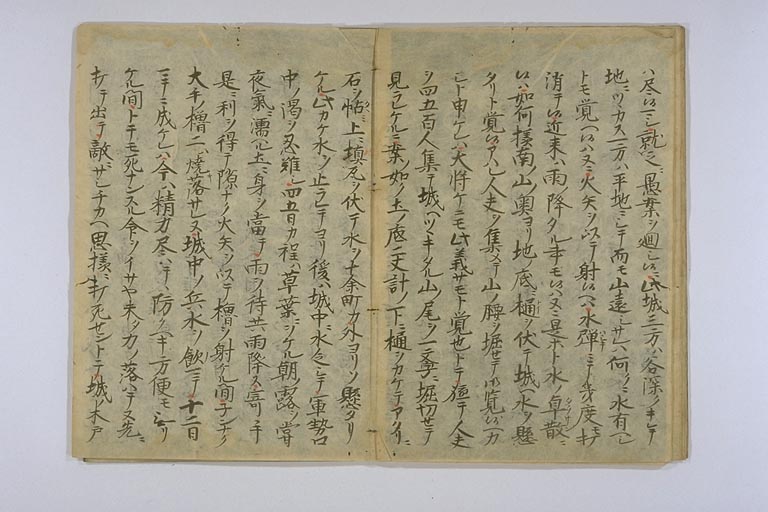 ハ尽候ヘシ就之ニ愚案ヲ廻シ候ニ此城三方ハ谷深ノキレテ
地ニツヽカス一方ハ平地ニシテ而モ山遠シサレハ何クニ水有ヘシ
トモ覚ヘ候ハス又火矢ヲ以テ射候ヘハ水弾ニテ多度モ打
消テ候近来ハ雨ノ降タル事モ候ハス又是ホト水ノ卓散ニ
候ハ如何様南山ノ奥ヨリ地ノ底ニ樋ヲ伏テ城ヘ水ヲ懸
タリト覚候アハレ人夫ヲ集メテ山ノ腰ヲ堀セテ御覧候ヘカ
シト申ケレハ大将ケニモ此義サモト覚也トテ人夫
ヲ四五百人集テ城ヘツヽキタル山ノ尾ヲ一文字ニ堀切セテ
見ラレケルニ案ノ如ク土ノ底二丈計ノ下ニ樋ヲカケテアタリニ
石ヲ帖上ニ填瓦ヲ伏テ水ヲ十余町カ外ヨリソ懸タリ
ケル此カケ水ヲ止ラレテヨリ後ハ城中ニ水乏シテ軍勢口
中ノ渇ヲ忍難シ四五日カ程ハ草葉ニヲケル朝ノ露ヲ嘗
夜氣ニ濡ヘル土ニ身ヲ當テ雨ヲ待共雨降ス寄手
是ニ利ヲ得テ隙ナク火矢ヲ以テ櫓ヲ射ケル間
大手ノ櫓二焼落サレヌ城中ノ兵水ヲ飲スシテ十二日
ニ成ケレハ今ハ精力尽ハテヽ防クヘキ方便モ无リ
ケル間トテモ死ナンスル命ヲイサヤ未タ力ノ落ハテヌ先ニ
打テ出テ敵ニサシチカヘ思様ニ打死セントテ城ノ木戸